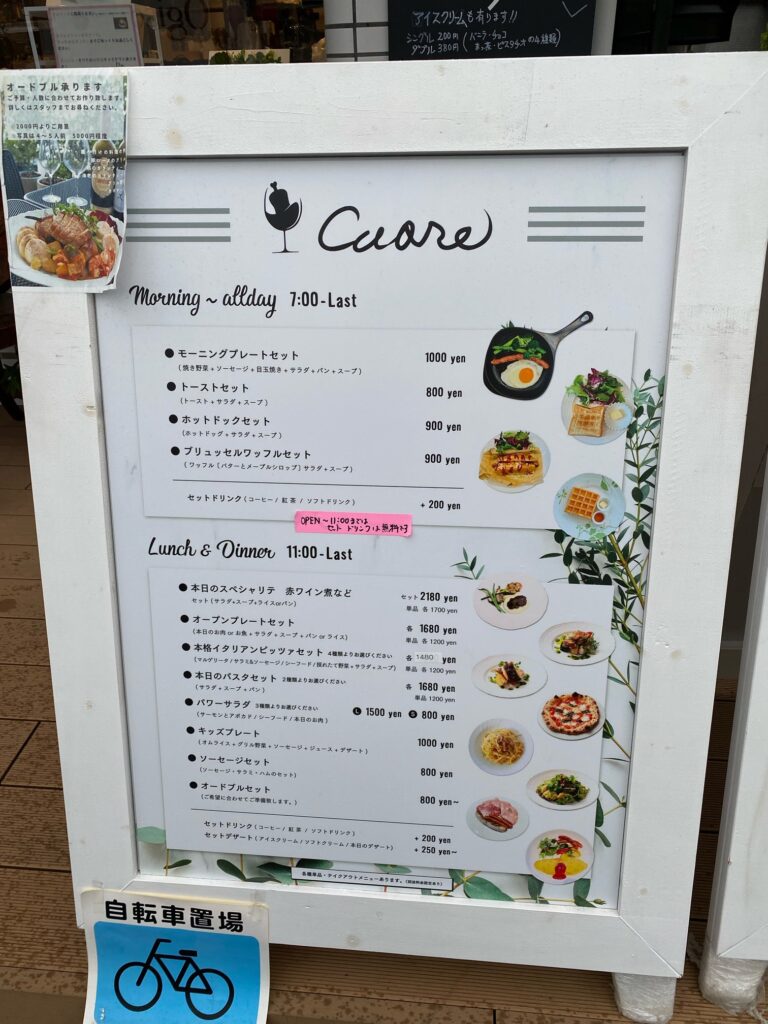 アイスクリームも有ります!!
シングル 200円 (バニラ・チョコ
ダブル 380円 まっ茶・ピスタチオの4種類)
オードブル承ります
ご予算・人数に合わせてお作り致します。
詳しくはスタッフまでお尋ねください。
※2000円よりご用意
※写真は4〜5人前 5000円程度
Cuore
Morning ~ allday 7:00-Last
● モーニングプレートセット 1000 yen
(焼き野菜+ソーセージ+目玉焼き+サラダ+パン+スープ)
● トーストセット 800 yen
(トースト+サラダ+スープ)
● ホットドックセット 900 yen
(ホットドッグ+サラダ+スープ)
● ブリュッセルワッフルセット 900 yen
(ワッフル〔バターとメープルシロップ〕サラダ+スープ)
セットドリンク(コーヒー/ 紅茶 / ソフトドリンク) + 200 yen
OPEN〜11:00までは
セットドリンクは無料です
Lunch & Dinner 11:00-Last
● 本日のスペシャリテ 赤ワイン煮など セット 2180 yen
セット(サラダ+スープ+ライスorパン) 単品 各 1700 yen
● オープンプレートセット 各 1680 yen
(本日のお肉 or お魚+サラダ+スープ+パン or ライス) 単品 各 1200 yen
● 本格イタリアンピッツァセット 4種類よりお選びください 各 1480 yen
(マルゲリータ/サラミ&ソーセージ/シーフード/採れたて野菜+サラダ+スープ) 単品 各 1200 yen
● 本日のパスタセット 2種類よりお選びください 各 1680 yen
(サラダ+スープ+パン) 単品 1200 yen
● パワーサラダ 3種類よりお選びください L 1500 yen S 800 yen
(サーモンとアボカド/シーフード/本日のお肉)
● キッズプレート 1000 yen
(オムライス+グリル野菜+ソーセージ+ジュース+デザート)
● ソーセージセット 800 yen
(ソーセージ・サラミ・ハムのセット)
● オードブルセット 800 yen~
(ご希望に合わせてご準備致します。)
セットドリンク(コーヒー/ 紅茶 / ソフトドリンク) + 200 yen
セットデザート(アイスクリーム/ソフトクリーム/本日のデザート) + 250 yen~
各種単品・テイクアウトメニューあります。
自転車置場